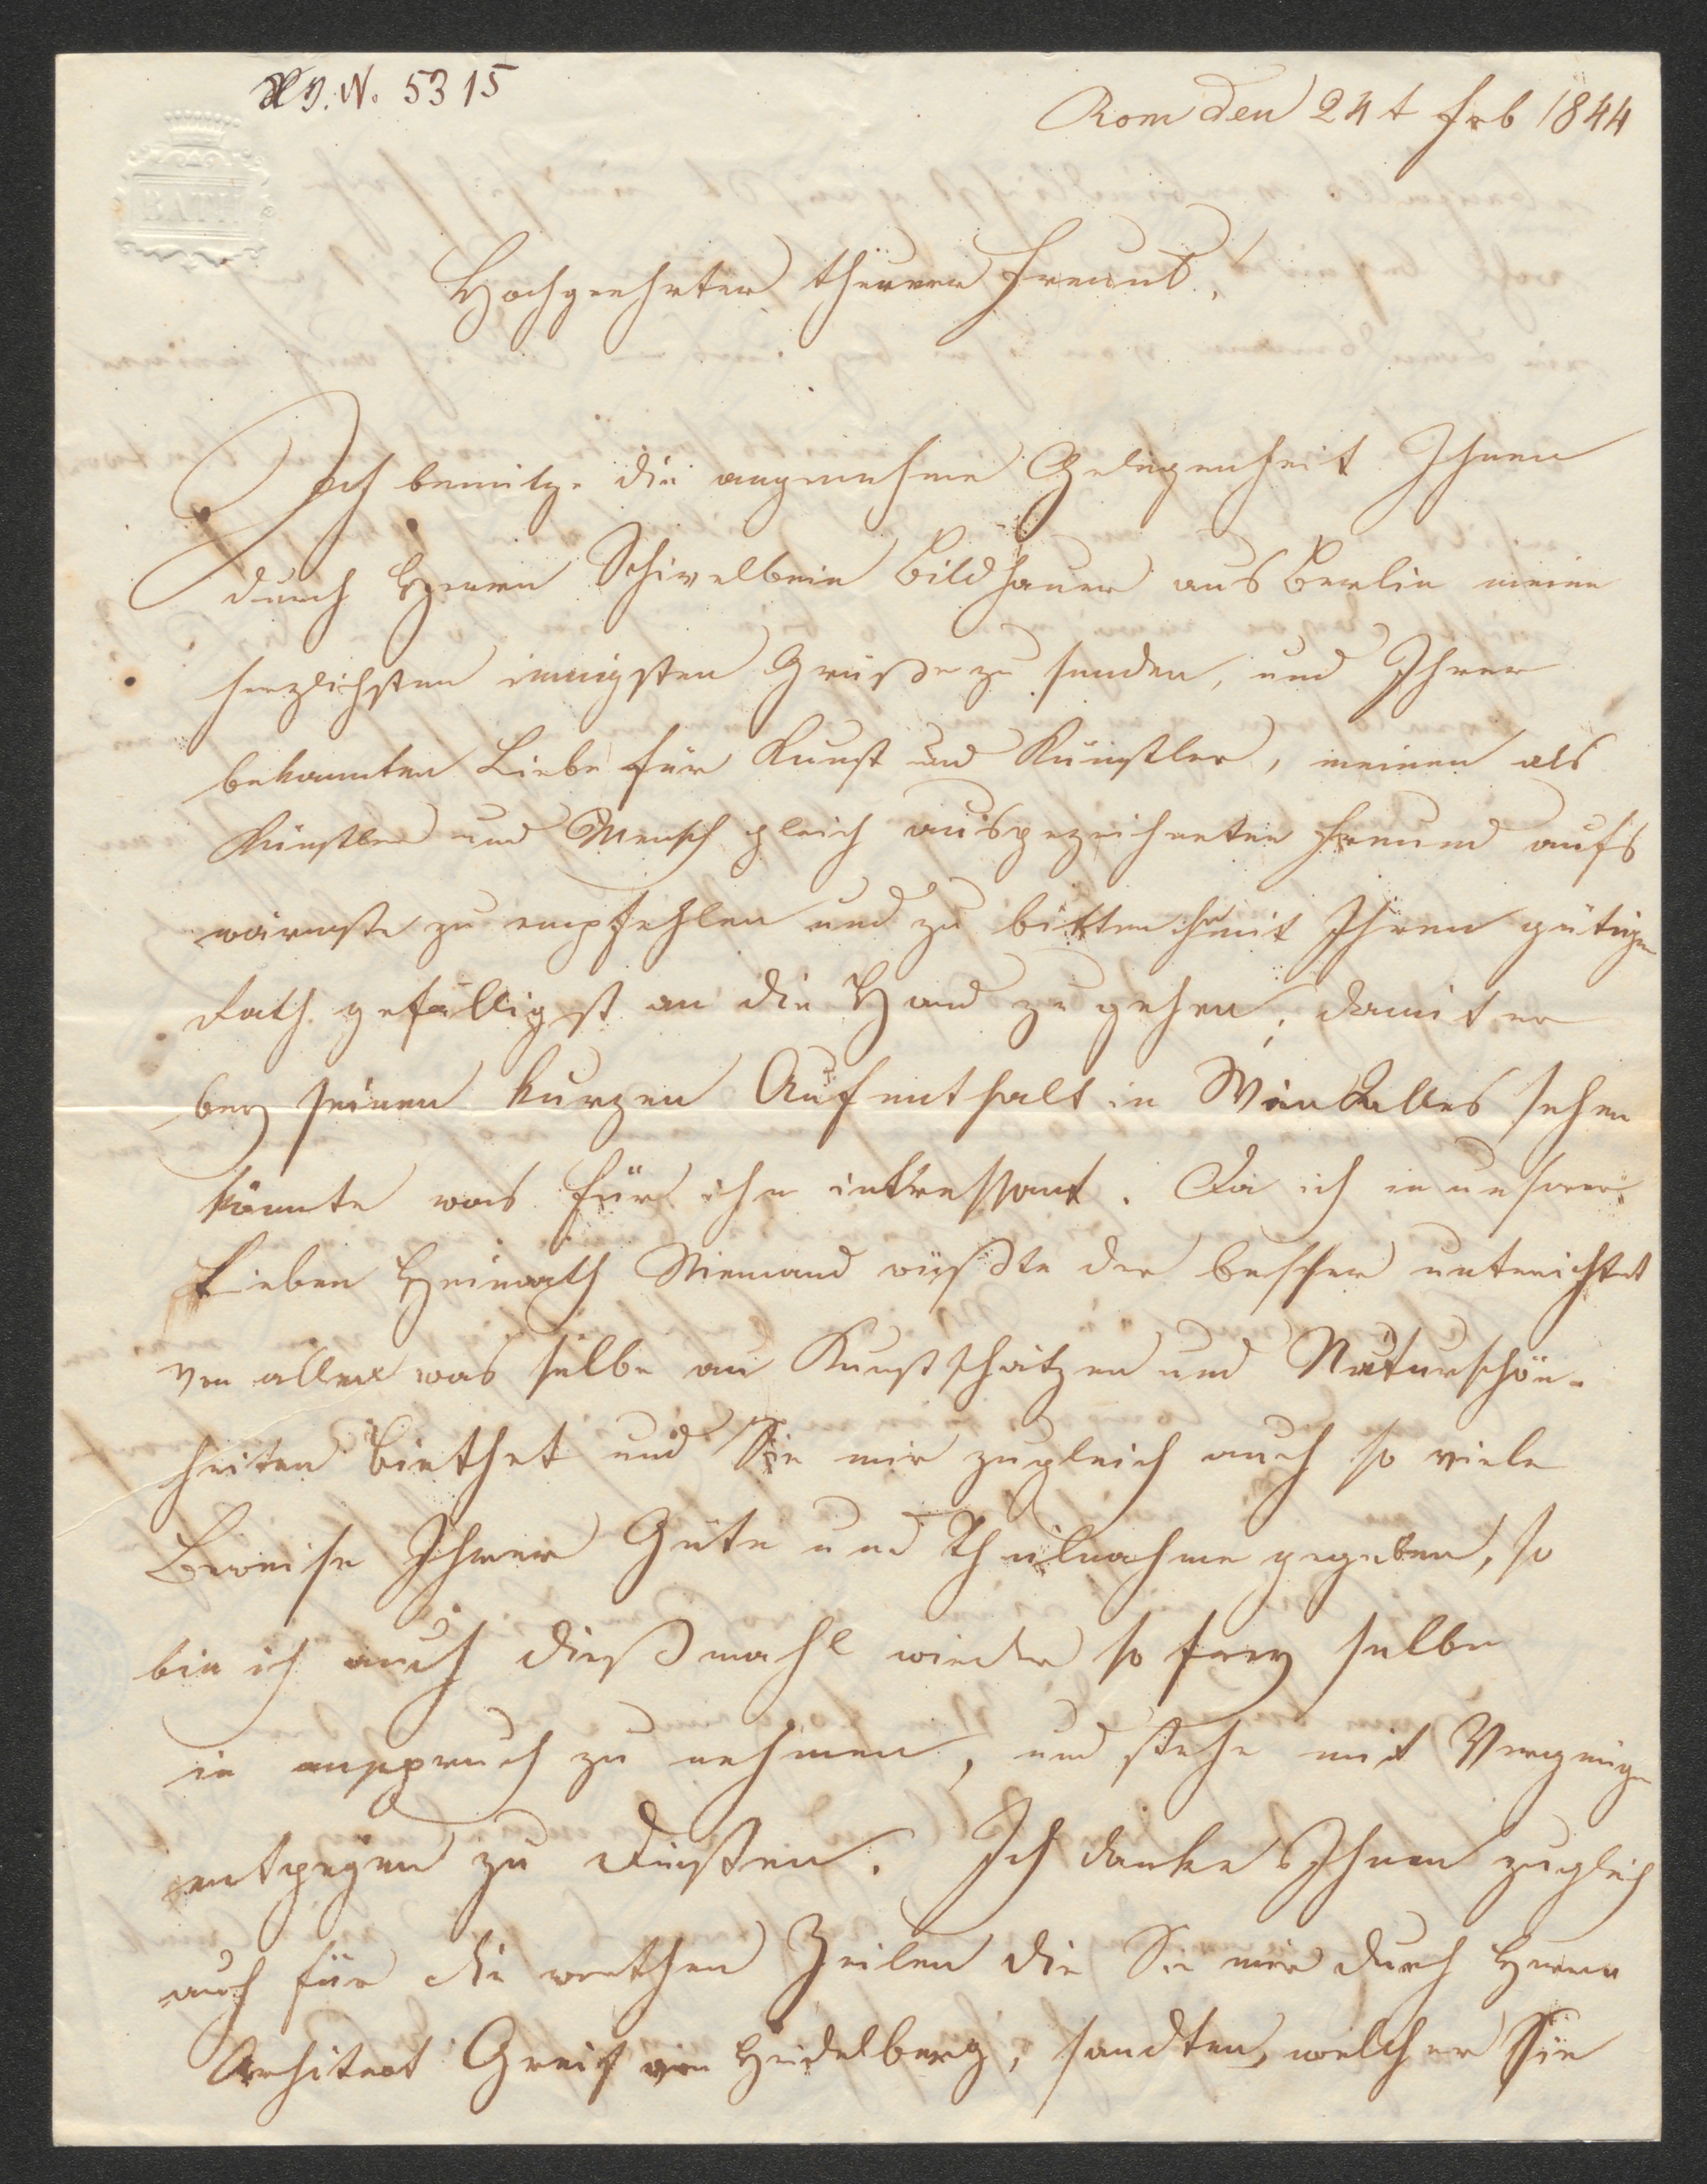 H.I.N. 5315
Rom den 24t Feb 1844
BATH
Hochgeehrter theurer Freund!
Ich benutze die angenehme Gelegenheit Ihnen
durch Herrn Schivelbein Bildhauer aus Berlin meine
herzlichsten innigsten Grüße zu senden, und Ihrer
bekannten Liebe für Kunst und Künstler, meinen als
Künstler und Mensch gleich ausgezeichneten Freund aufs
wärmste zu empfehlen und zu bitten ihm mit Ihren gütigen
Rath gefälligst an die Hand zu gehen, damit er
bey seinen kurzen Aufenthalt in Wien Alles sehen
könnte was für ihn intressant. Da ich in unserer
Lieben Heimath Niemand wüßte der besser unterichtet
von allem was selbe an Kunstschätzen und Naturschön-
heiten biethet und Sie mir zugleich auch so viele
Beweise Ihrer Güte und Theilnahme gegeben, so
bin ich auch dießmahl wieder so frey selbe
in anspruch zu nehmen, und stehe mit Vergnügen
entgegen zu diensten. Ich danke Ihnen zugleich
auch für die werthen Zeilen die Sie mir durch Herrn
Architect Greif von Heidelberg, sandten, welcher Sie